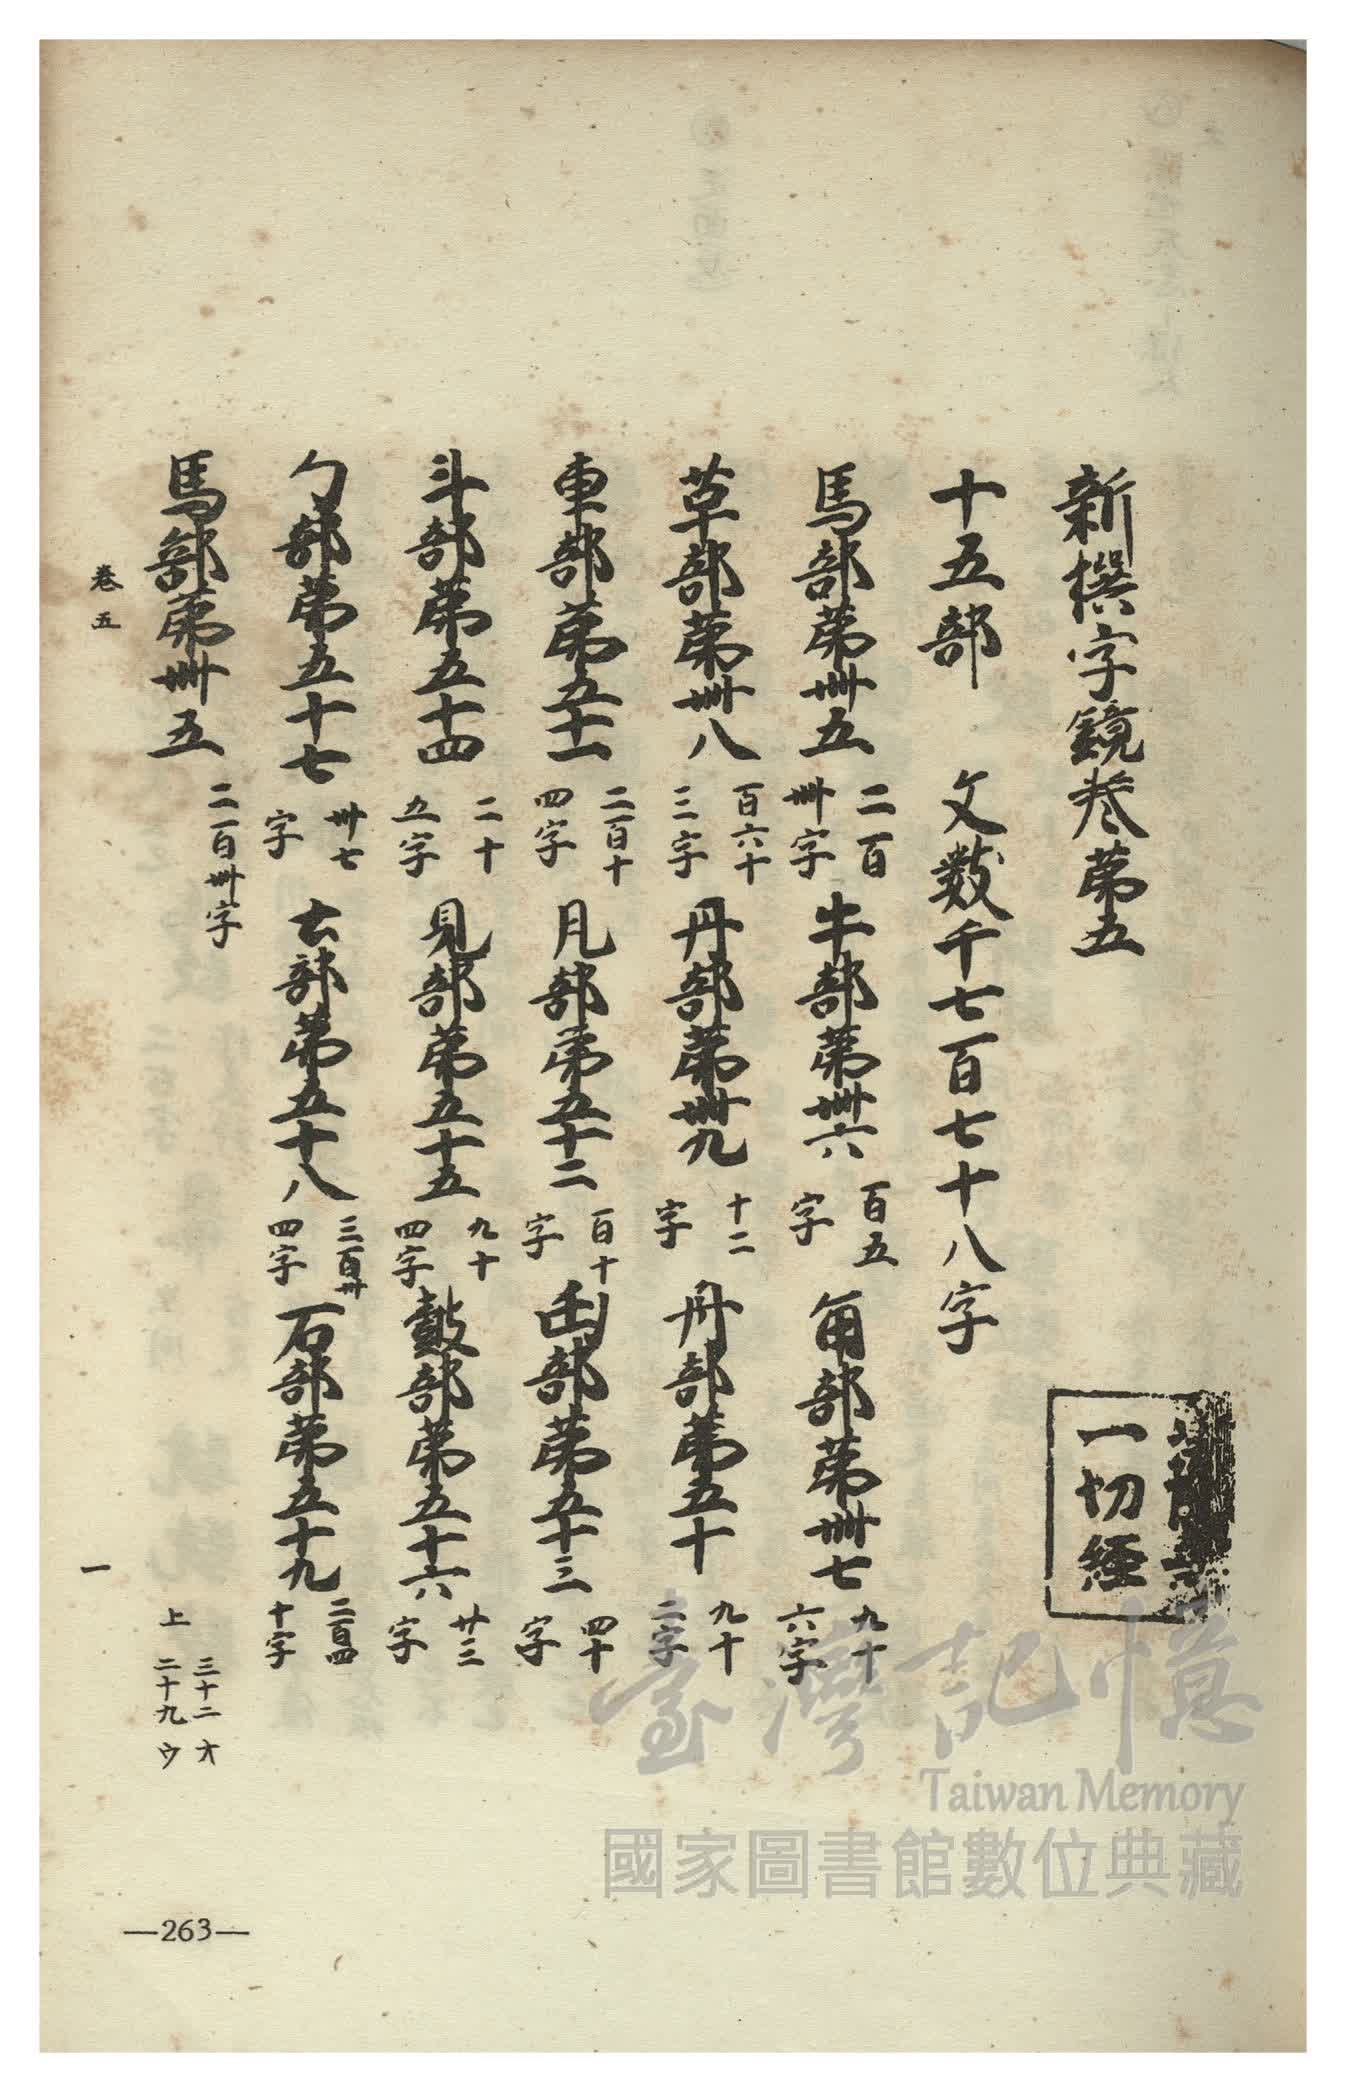 新撰字鏡卷苐五
一切経
十五部 文数千七百七十八字
馬部苐卌五 二百卌字 牛部苐卌六 百五字 角部苐卌七 九十六字
草部苐卌八 百六十三字 丹部苐卌九 十二字 舟部苐五十 九十二字
車部苐五十一 二百十四字 凡部苐五十二 百十字 部苐五十三 四十字
斗部苐五十四 二十五字 見部苐五十五 九十四字 鼓部苐五十六 廿三字
勹部苐五十七 卅七字 部苐五十八 三百卅四字 石部苐五十九 二百四十字
馬部苐卌五 二百卌字
卷五
一
上 三十二オ
二十九ウ
—263—
臺灣記憶
Taiwan Memory
國家圖書館數位典藏